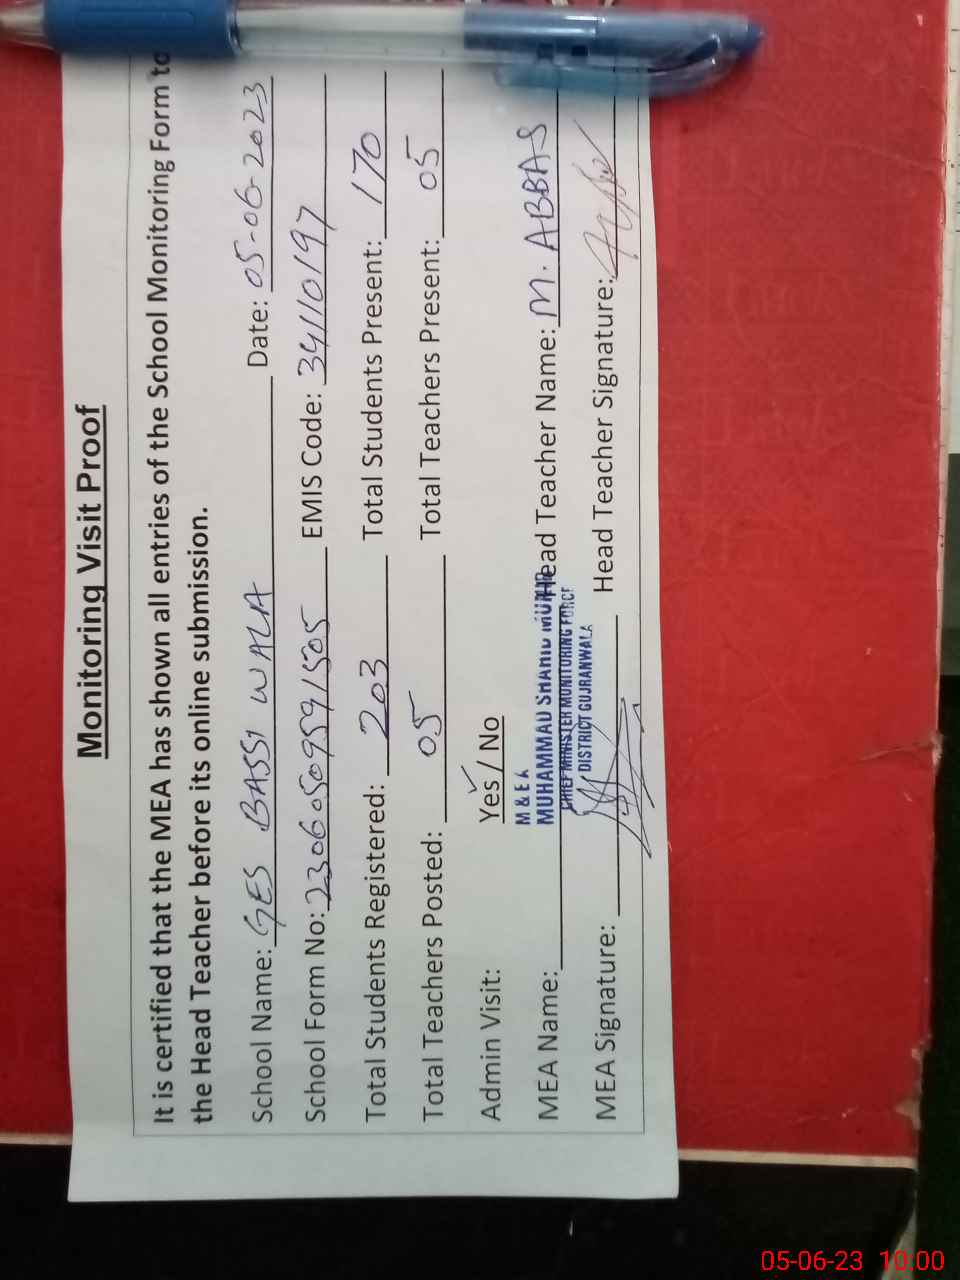 Monitoring Visit Proof
It is certified that the MEA has shown all entries of the School Monitoring Form to
the Head Teacher before its online submission.
School Name: GES BASSI WALA Date: 05-06-2023
School Form No: 23060509591505 EMIS Code: 34110197
Total Students Registered: 203 Total Students Present: 170
Total Teachers Posted: 05 Total Teachers Present: 05
Admin Visit: Yes / No
M & E A
MEA Name: MUHAMMAD SHAHID Head Teacher Name: M. ABBAS
CHIEF MINISTER MONITORING FORCE
DISTRICT GUJRANWALA
MEA Signature: Head Teacher Signature:
05-06-23 10:00